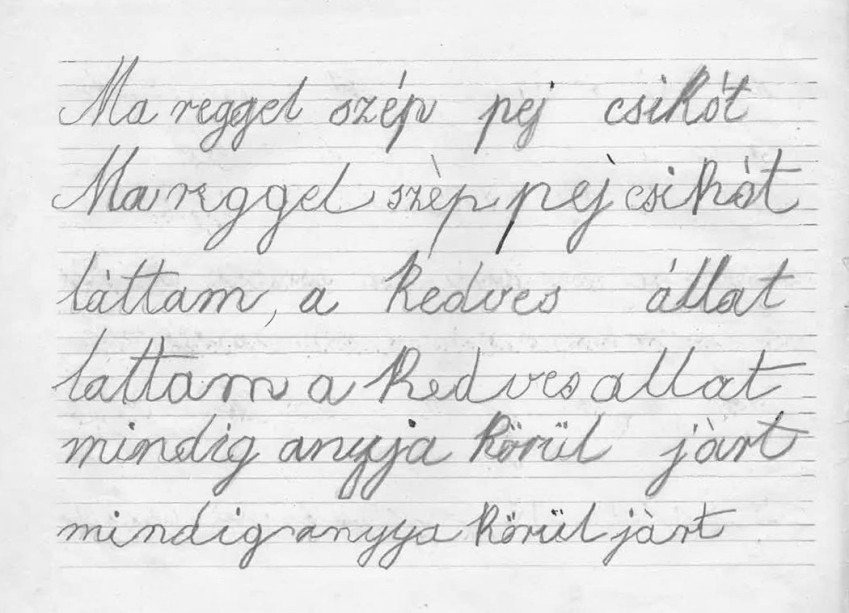 Ma reggel szép pej csikót
Ma reggel szèp pèj csikòt
láttam, a kedves állat
lattam a kedves allat
mindig anyja körül jàrt
mindig anyya körül jàrt